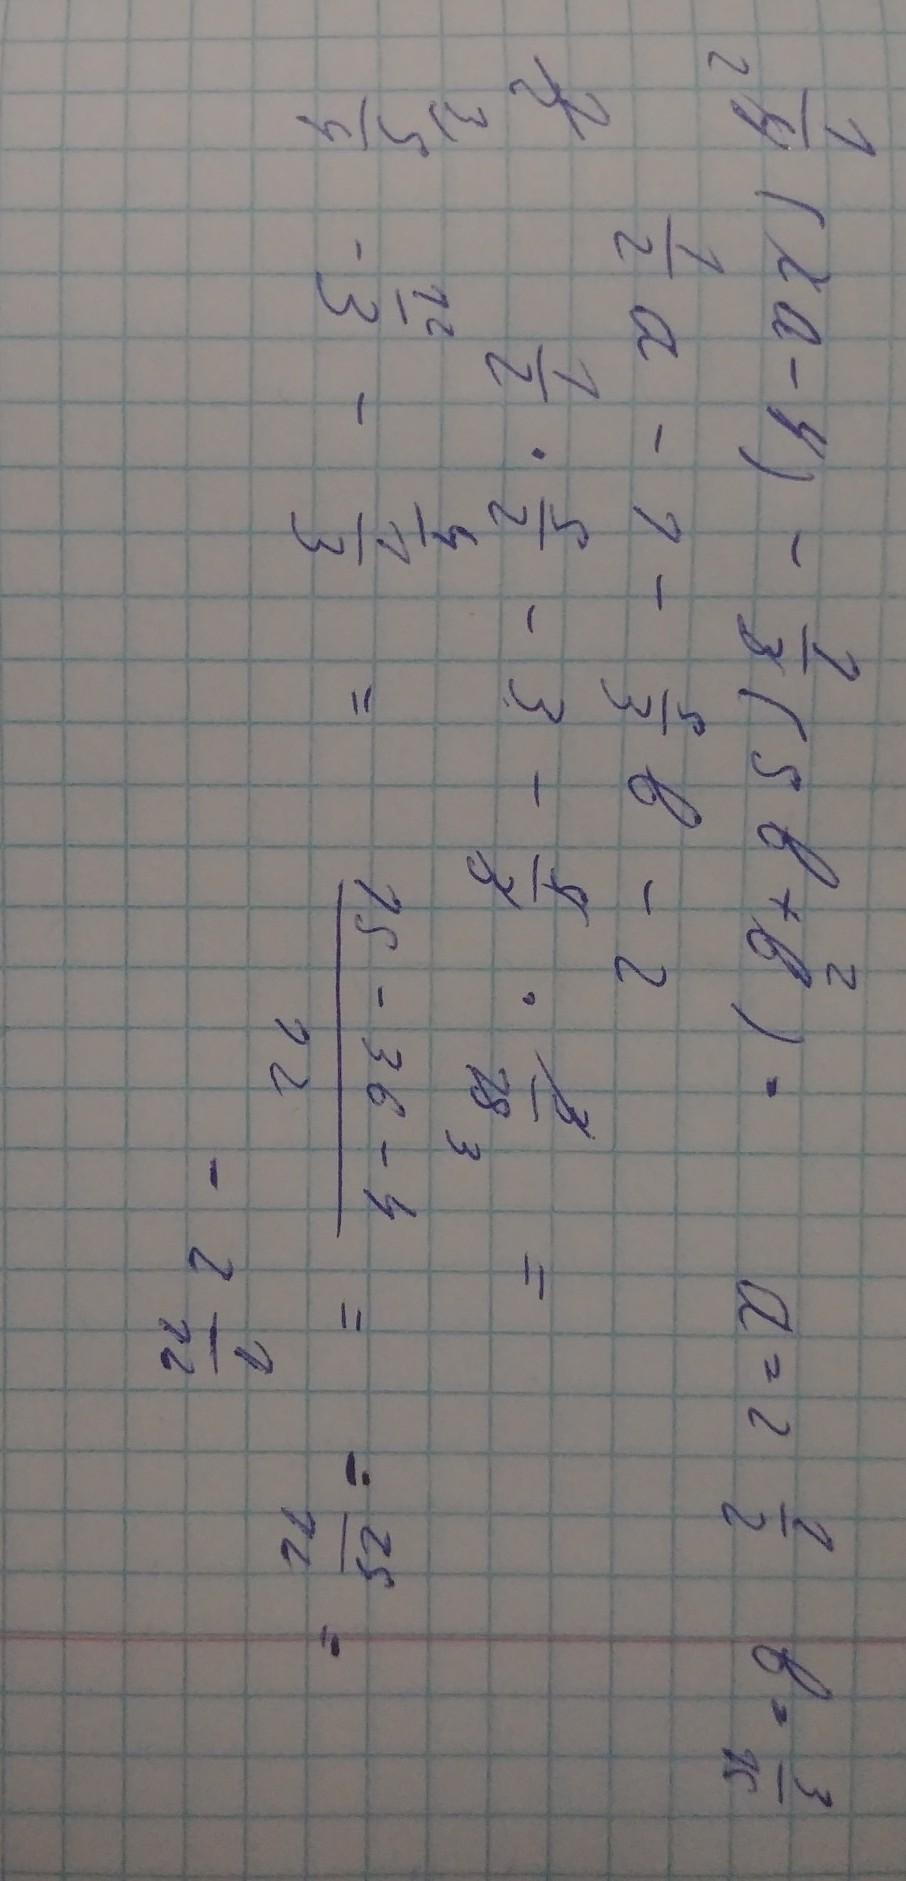 1/4 (2a - 4) - 1/3 (5b + 6). a = 2 1/2 b = 3/15
2 2
1/2 a - 1 - 5/3 b - 2
1/2 · 5/2 - 3 - 5/3 · 3/15 =
3
3 12 4
5/4 - 3 - 1/3 = (15 - 36 - 4)/12 = - 25/12 =
- 2 1/12